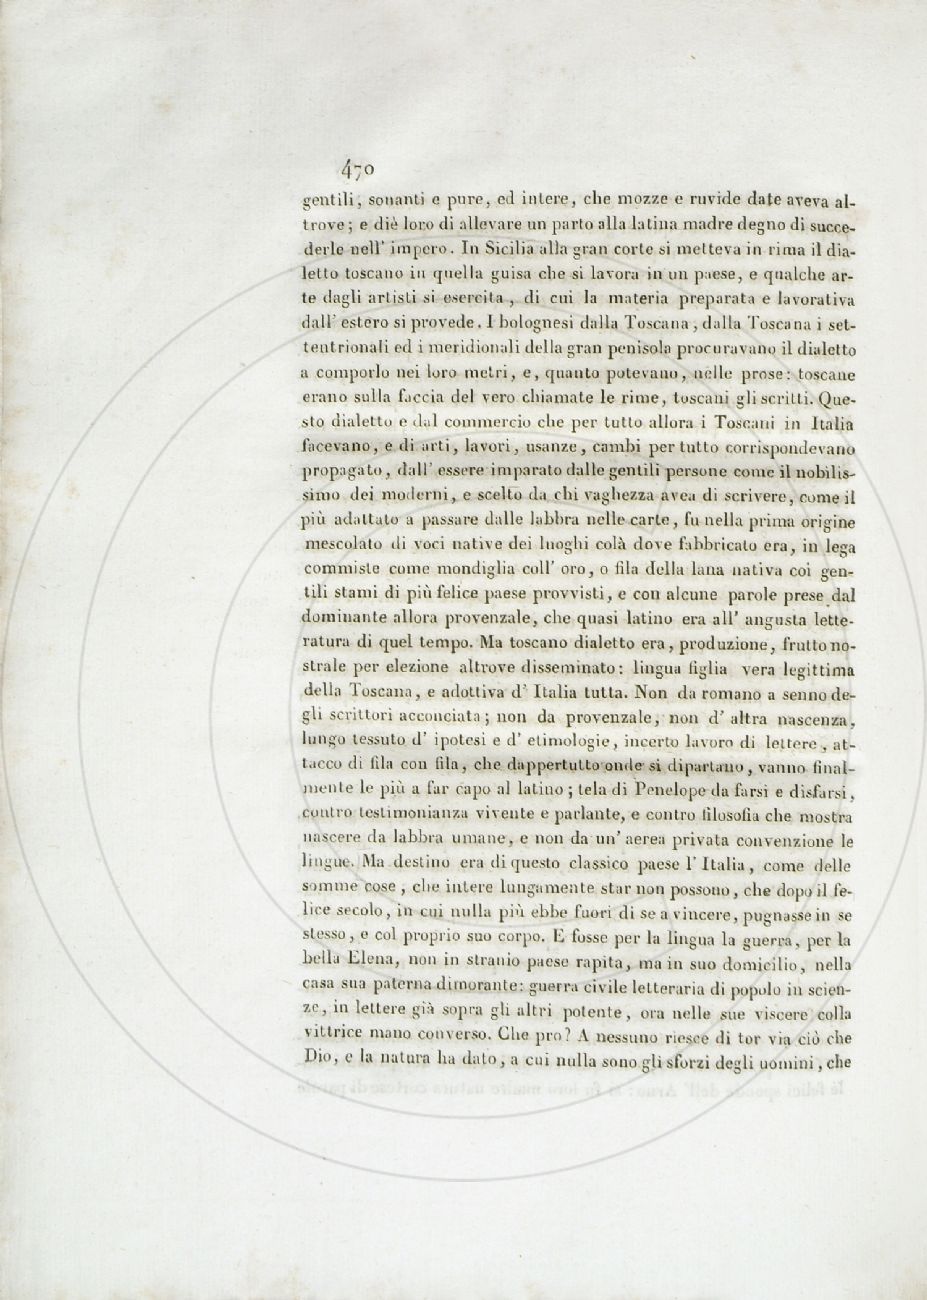 470
gentili, sonanti e pure, ed intere, che mozze e ruvide date aveva al-
trove; e diè loro di allevare un parto alla latina madre degno di succe-
derle nell' impero. In Sicilia alla gran corte si metteva in rima il dia-
letto toscano in quella guisa che si lavora in un paese, e qualche ar-
te dagli artisti si esercita, di cui la materia preparata e lavorativa
dall' estero si provede. I bolognesi dalla Toscana, dalla Toscana i set-
tentrionali ed i meridionali della gran penisola procuravano il dialetto
a comporlo nei loro metri, e, quanto potevano, nelle prose: toscane
erano sulla faccia del vero chiamate le rime, toscani gli scritti. Que-
sto dialetto e dal commercio che per tutto allora i Toscani in Italia
facevano, e di arti, lavori, usanze, cambi per tutto corrispondevano
propagato, dall' essere imparato dalle gentili persone come il nobilis-
simo dei moderni, e scelto da chi vaghezza avea di scrivere, come il
più adattato a passare dalle labbra nelle carte, fu nella prima origine
mescolato di voci native dei luoghi colà dove fabbricato era, in lega
commiste come mondiglia coll' oro, o fila della lana nativa coi gen-
tili stami di più felice paese provvisti, e con alcune parole prese dal
dominante allora provenzale, che quasi latino era all' angusta lette-
ratura di quel tempo. Ma toscano dialetto era, produzione, frutto no-
strale per elezione altrove disseminato: lingua figlia vera legittima
della Toscana, e adottiva d' Italia tutta. Non da romano a senno de-
gli scrittori acconciata; non da provenzale, non d' altra nascenza,
lungo tessuto d' ipotesi e d' etimologie, incerto lavoro di lettere, at-
tacco di fila con fila, che dappertutto onde si dipartano, vanno final-
mente le più a far capo al latino; tela di Penelope da farsi e disfarsi,
contro testimonianza vivente e parlante, e contro filosofia che mostra
nascere da labbra umane, e non da un' aerea privata convenzione le
lingue. Ma destino era di questo classico paese l' Italia, come delle
somme cose, che intere lungamente star non possono, che dopo il fe-
lice secolo, in cui nulla più ebbe fuori di se a vincere, pugnasse in se
stesso, e col proprio suo corpo. E fosse per la lingua la guerra, per la
bella Elena, non in stranio paese rapita, ma in suo domicilio, nella
casa sua paterna dimorante: guerra civile letteraria di popolo in scien-
ze, in lettere già sopra gli altri potente, ora nelle sue viscere colla
vittrice mano converso. Che pro? A nessuno riesce di tor via ciò che
Dio, e la natura ha dato, a cui nulla sono gli sforzi degli uomini, che